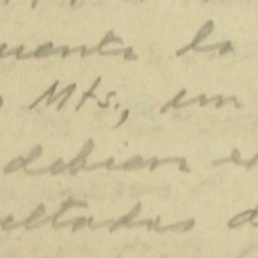 uenta la
Mts., em
debien e
ultados d